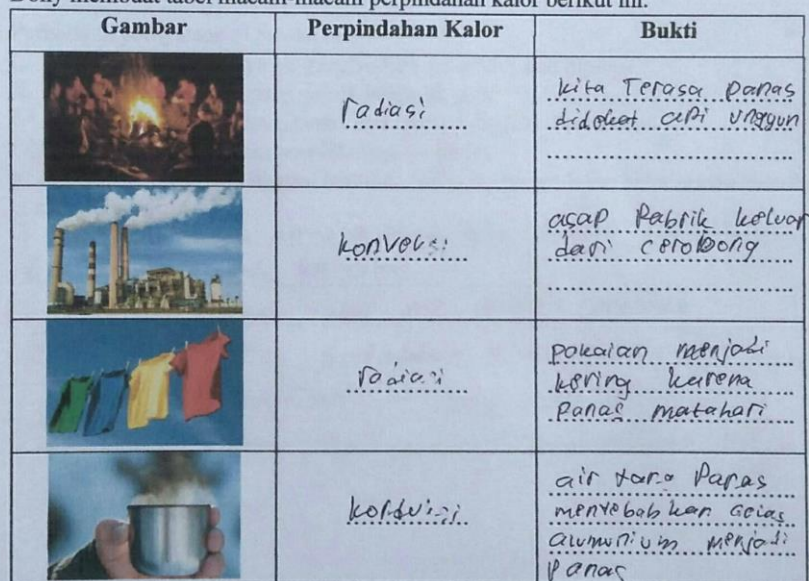 Dony membuat tabel macam-macam perpindahan kalor berikut ini.
Gambar Perpindahan Kalor Bukti
radiasi
kita Terasa panas
didekat api unggun
konveksi
asap Pabrik keluar
dari cerobong
radiasi
pakaian menjadi
kering karena
Panas matahari
konduksi
air yang Panas
menyebabkan gelas
alumunium menjadi
panas